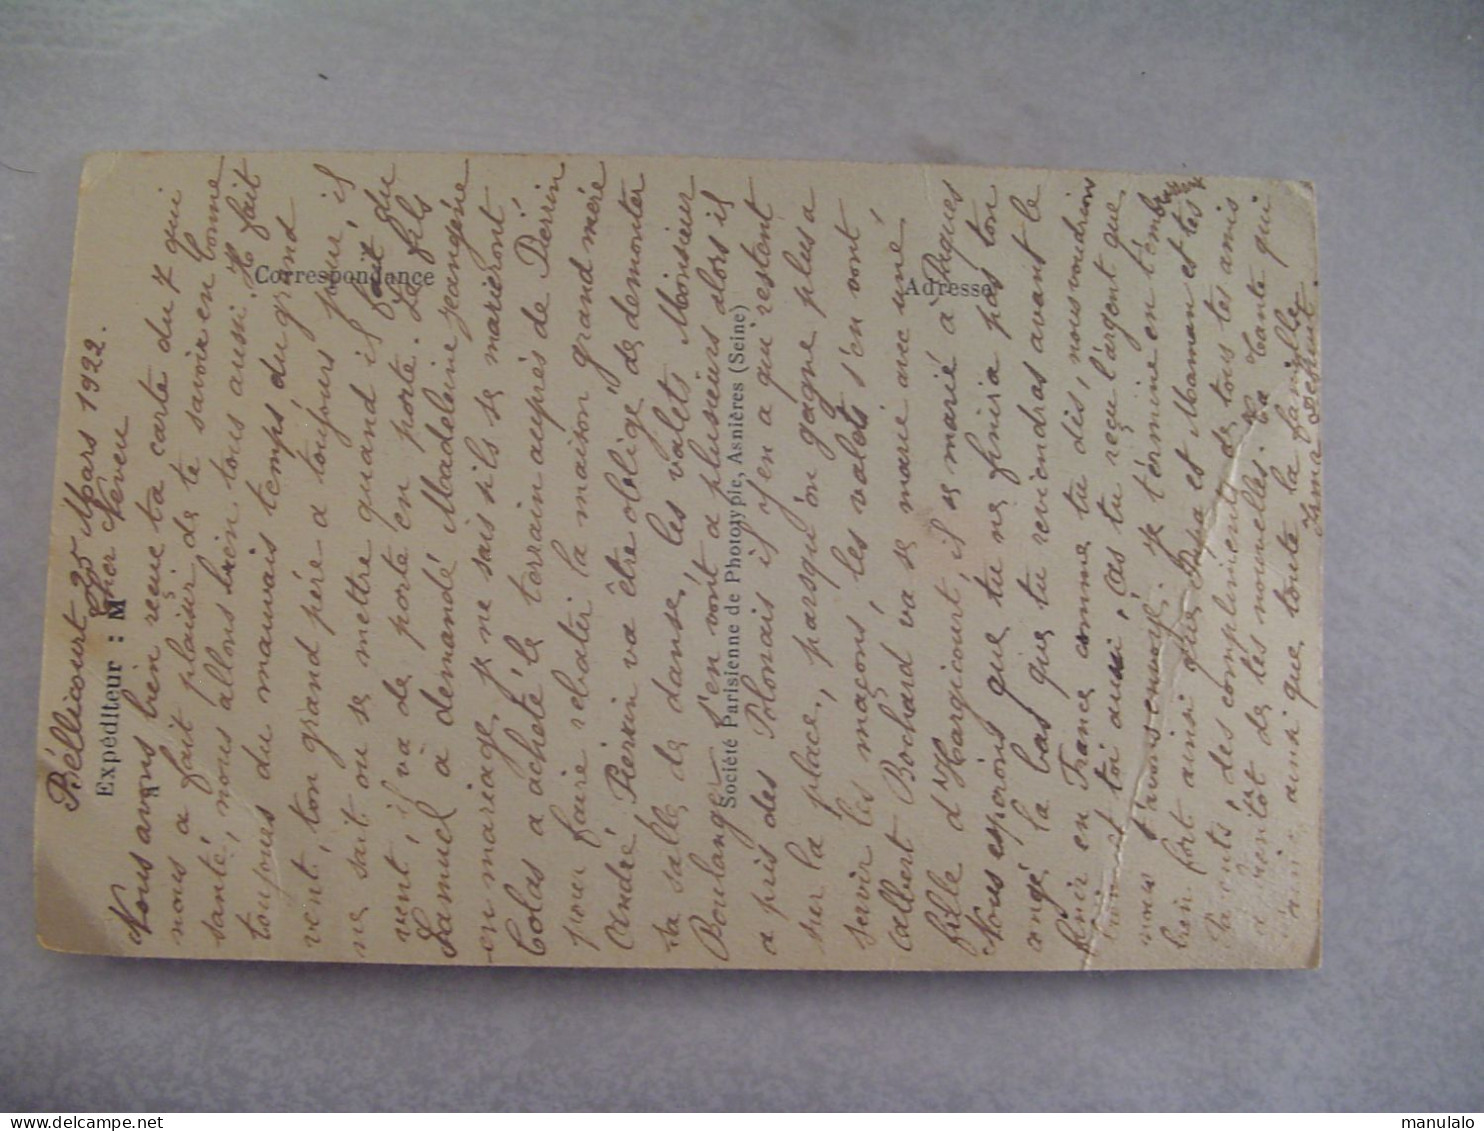 Béllicourt 25 Mars 1922.
Expéditeur : M
Cher Neveu
Nous avons bien reçue ta carte du 7 qui
nous a fait plaisir de te savoir en bonne
santé, nous allons bien tous aussi. Il fait
toujours du mauvais temps du grand
vent, ton grand pére a toujours peur, il
ne sait ou se mettre quand il fait du
vent, il va de porte en porte. Le fils
Samuel a demandé Madeleine Jeangéne
en mariage, je ne sais s'ils se marieront
Colas a acheté le terrain auprés de Perrin
pour faire rebatir la maison grand mére
André Pierson va être obligé de demonter
sa salle de danse, les valets Monsieur
Boulanger s'en vont a plusieurs alors il
a pris des Polonais il y en a qui restent
sur la place, parsqu'on gagne plus a
servir les maçons, les valets s'en vont
Albert Bochard va se marié avec une
fille d'Hargicourt, il se marié à Paques
Nous esperons que tu ne finira pas ton
angé la bas que tu reviendras avant le
finir en France comme tu dis, nous voudrions
toi aussi, As tu reçu l'argent que
nous t'avons envoyé. Je termine en t'embr
bien fort ainsi que Papa et Maman et tes
des compliments de tous tes amis
a bientôt de tes nouvelles. Ta Tante qui
ainsi que toute la famille
Correspondance
Adresse
Société Parisienne de Phototypie, Asnières (Seine)
www.delcampe.net
manulalo